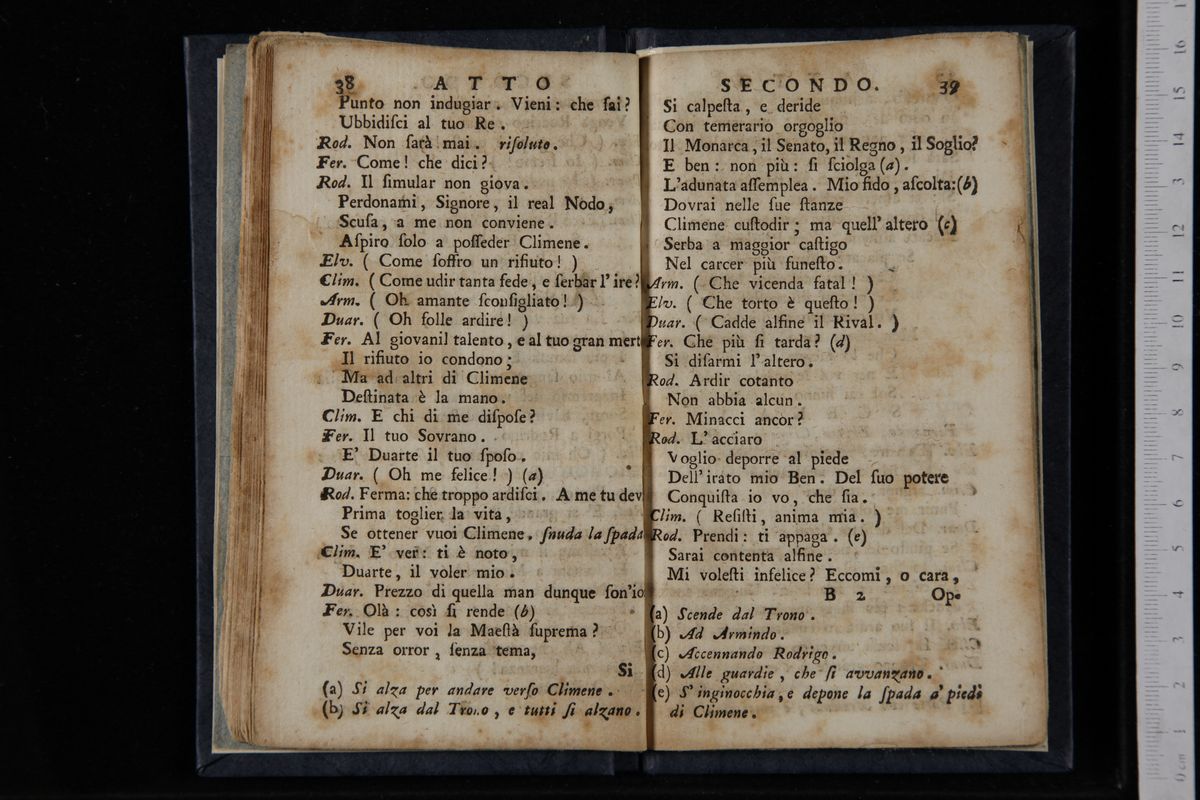 38 ATTO
Punto non indugiar. Vieni: che fai?
Ubbidiſci al tuo Re.
Rod. Non ſarà mai. riſoluto.
Fer. Come! che dici?
Rod. Il ſimular non giova.
Perdonami, Signore, il real Nodo,
Scuſa, a me non conviene.
Aſpiro ſolo a poſſeder Climene.
Elv. ( Come ſoffro un rifiuto! )
Clim. ( Come udir tanta fede, e ſerbar l'ire?
Arm. ( Oh amante ſconſigliato! )
Duar. ( Oh folle ardire! )
Fer. Al giovanil talento, e al tuo gran mert
Il rifiuto io condono;
Ma ad altri di Climene
Deſtinata è la mano.
Clim. E chi di me diſpoſe?
Fer. Il tuo Sovrano.
E' Duarte il tuo ſpoſo.
Duar. ( Oh me felice! ) (a)
Rod. Ferma: che troppo ardiſci. A me tu dev
Prima toglier la vita,
Se ottener vuoi Climene. ſnuda la ſpada
Clim. E' ver: ti è noto,
Duarte, il voler mio.
Duar. Prezzo di quella man dunque ſon'io
Fer. Olà: così ſi rende (b)
Vile per voi la Maeſtà ſuprema?
Senza orror, ſenza tema,
Si
(a) Si alza per andare verſo Climene.
(b) Si alza dal Trono, e tutti ſi alzano.
SECONDO. 39
Si calpeſta, e deride
Con temerario orgoglio
Il Monarca, il Senato, il Regno, il Soglio?
E ben: non più: ſi ſciolga (a).
L'adunata aſſemplea. Mio fido, aſcolta: (b)
Dovrai nelle ſue ſtanze
Climene cuſtodir; ma quell'altero (c)
Serba a maggior caſtigo
Nel carcer più funeſto.
Arm. ( Che vicenda fatal! )
Elv. ( Che torto è queſto! )
Duar. ( Cadde alfine il Rival. )
Fer. Che più ſi tarda? (d)
Si diſarmi l'altero.
Rod. Ardir cotanto
Non abbia alcun.
Fer. Minacci ancor?
Rod. L'acciaro
Voglio deporre al piede
Dell'irato mio Ben. Del ſuo potere
Conquiſta io vo, che ſia.
Clim. ( Reſiſti, anima mia. )
Rod. Prendi: ti appaga. (e)
Sarai contenta alfine.
Mi voleſti infelice? Eccomi, o cara,
B 2 Op-
(a) Scende dal Trono.
(b) Ad Armindo.
(c) Accennando Rodrigo.
(d) Alle guardie, che ſi avvanzano.
(e) S'inginocchia, e depone la ſpada a' piedi
di Climene.